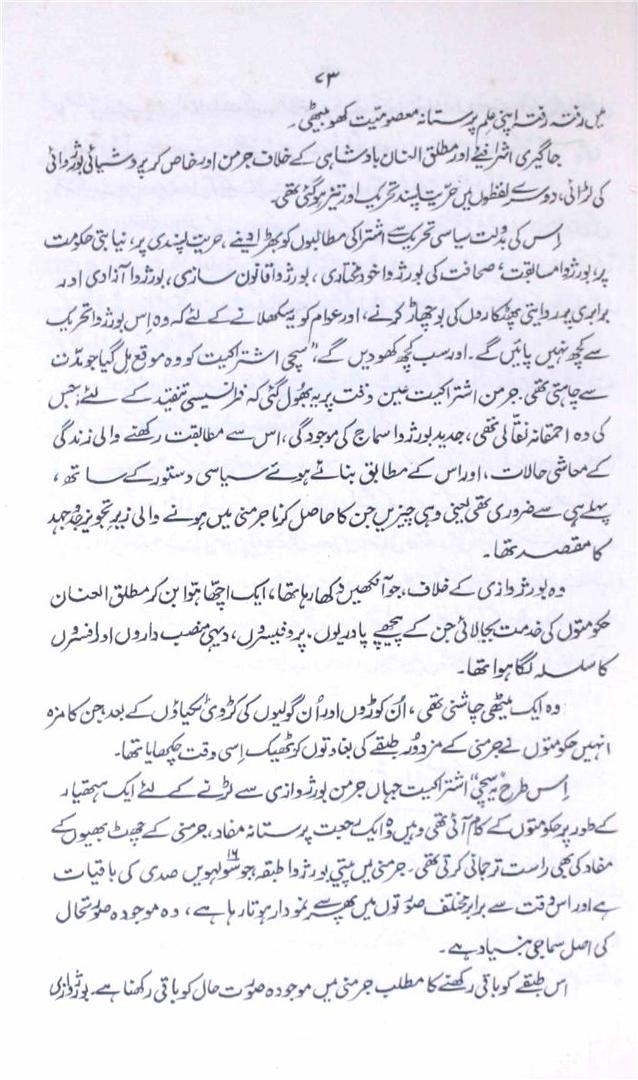 ۷۳
میں رفتہ رفتہ اپنی علم پرستانہ معصومیت کھو بیٹھی۔
جاگیری اشرافیے اور مطلق العنان بادشاہی کے خلاف جرمن اور خاص کر پروشیائی بورژوازی
کی لڑائی، دوسرے لفظوں میں حریت پسند تحریک اور تیز ہو گئی تھی۔
اس کی بدولت سیاسی تحریک سے اشتراکی مطالبوں کو بھڑا دینے، حریت پسندی پر، نیابتی حکومت
پر، بورژوا مسابقت، صحافت کی بورژوا خود مختاری، بورژوا قانون سازی، بورژوا آزادی اور
برابری پر روایتی پھٹکاروں کی بوچھاڑ کرنے، اور عوام کو یہ سکھلانے کے لئے کہ وہ اس بورژوا تحریک
سے کچھ نہیں پائیں گے۔ اور سب کچھ کھو دیں گے، "سچی اشتراکیت کو وہ موقع مل گیا جو مدت
سے چاہتی تھی۔ جرمن اشتراکیت عین وقت پر یہ بھول گئی کہ فرانسیسی تنقید کے لئے، جس
کی وہ احمقانہ نقالی تھی، جدید بورژوا سماج کی موجودگی، اس سے مطابقت رکھنے والی زندگی
کے معاشی حالات، اور اس کے مطابق بنائے ہوئے سیاسی دستور کے ساتھ،
پہلے ہی سے ضروری تھی یعنی وہی چیزیں جن کا حاصل کرنا جرمنی میں ہونے والی زیر تجویز جدوجہد
کا مقصد تھا۔
وہ بورژوازی کے خلاف، جو آنکھیں دکھا رہا تھا، ایک اچھا ہوا بن کر مطلق العنان
حکومتوں کی خدمت بجا لائی جن کے پیچھے پادریوں، پروفیسروں، دیہی منصب داروں اور افسروں
کا سلسلہ لگا ہوا تھا۔
وہ ایک میٹھی چاشنی تھی، ان کوڑوں اور ان گولیوں کی کڑوی ٹکیاؤں کے بعد جن کا مزہ
انہیں حکومتوں نے جرمنی کے مزدور طبقے کی بغاوتوں کو ٹھیک اسی وقت چکھایا تھا۔
اس طرح یہ "سچی" اشتراکیت جہاں جرمن بورژوازی سے لڑنے کے لئے ایک ہتھیار
کے طور پر حکومتوں کے کام آئی تھی وہیں وہ ایک رجعت پرستانہ مفاد، جرمنی کے چھٹ بھیوں کے
مفاد کی بھی راست ترجمانی کرتی تھی۔ جرمنی میں پیٹی بورژوا طبقہ جو سولہویں ۱۶ صدی کی باقیات
ہے اور اس وقت سے برابر مختلف صورتوں میں پھر سے نمودار ہوتا رہا ہے، وہ موجودہ صورتحال
کی اصل سماجی بنیاد ہے۔
اس طبقے کو باقی رکھنے کا مطلب جرمنی میں موجودہ صورت حال کو باقی رکھنا ہے۔ بورژوازی